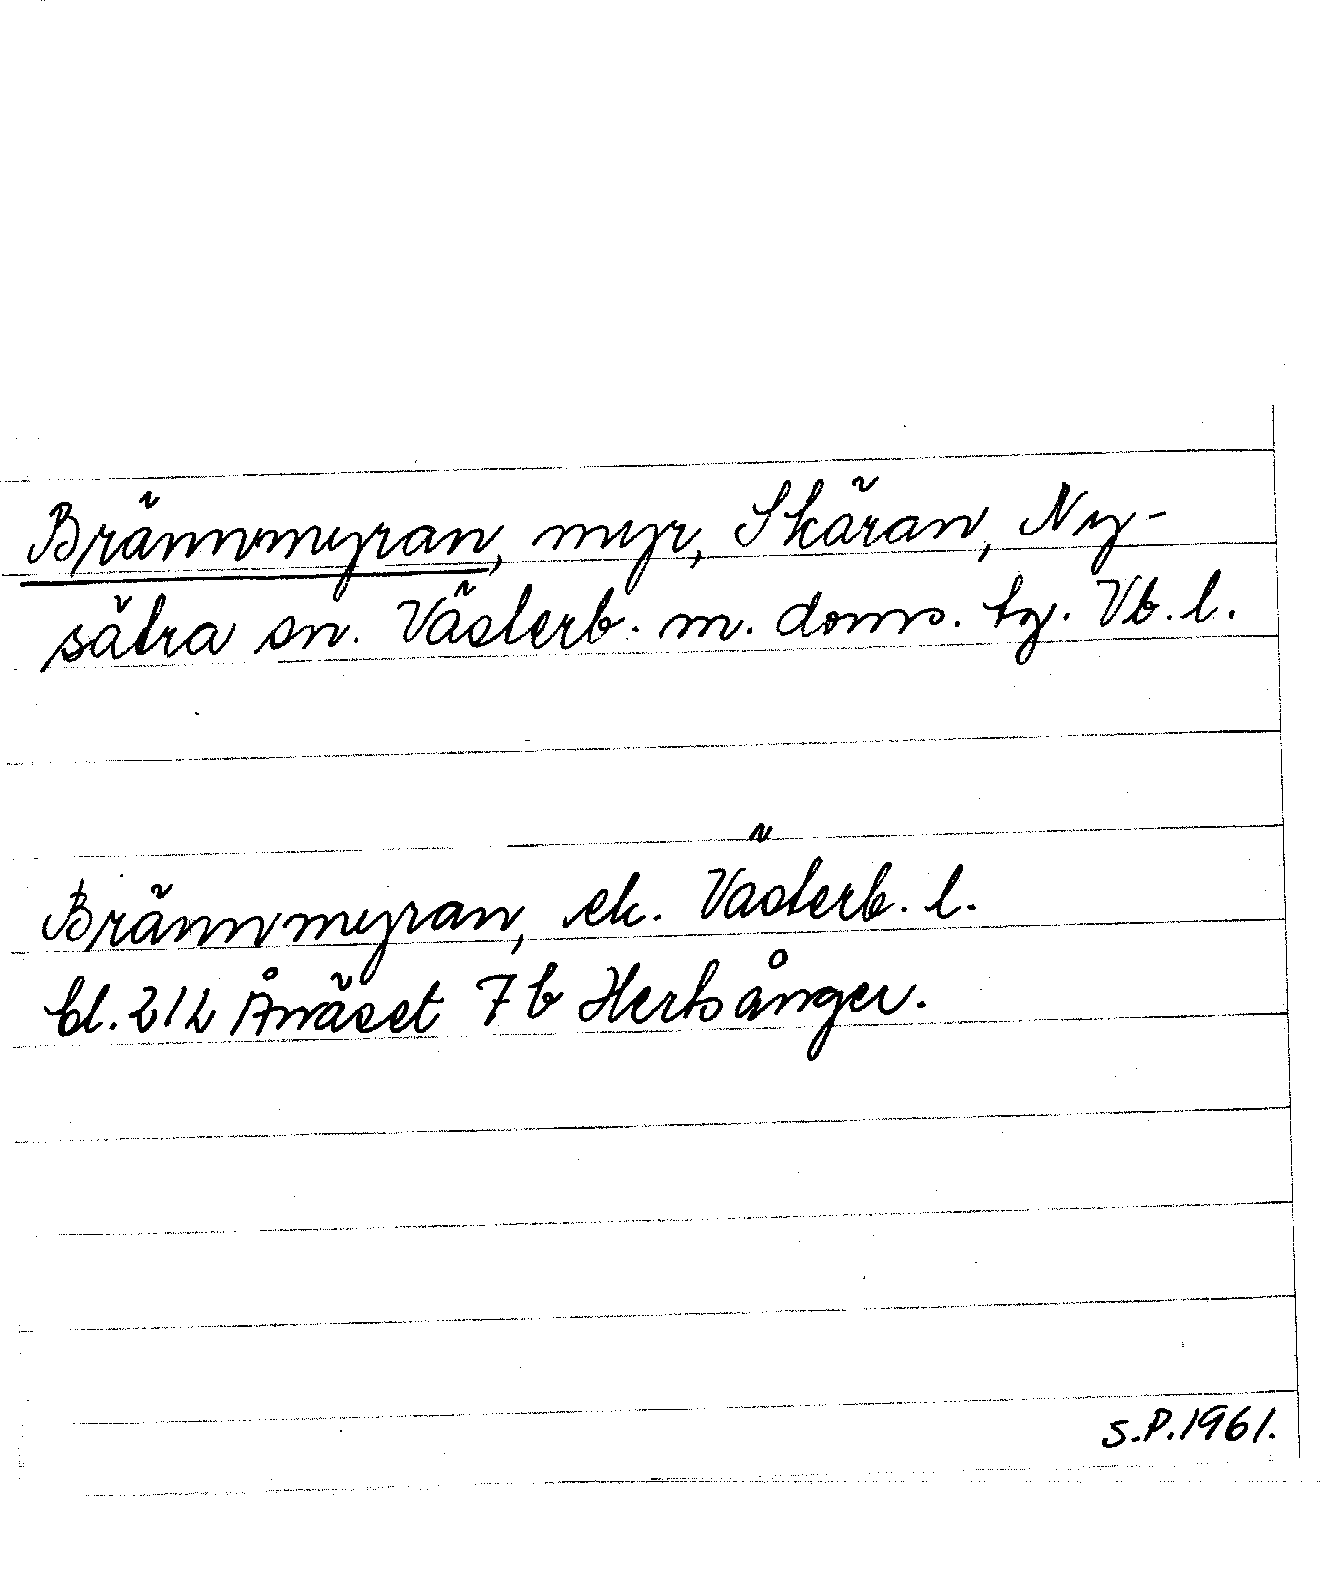 Brännmyran, myr, Skäran, Ny-
sätra sn. Västerb. m. doms. tg. Vb. l.
Brännmyran, ek. Västerb. l.
bl. 212 Ånäset 7b Hertsånger.
S.P. 1961.